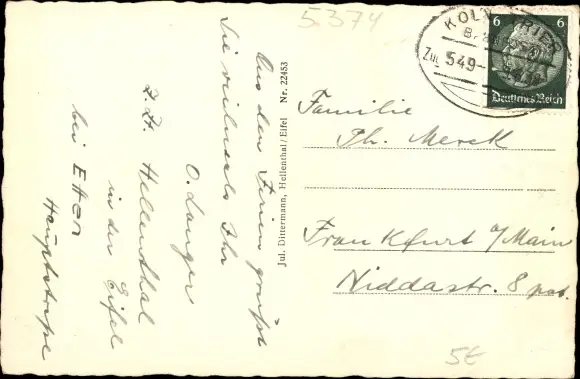 5374
Aus den Ferien grüßt
Sie vielmals Ihr
O. Langer
z. Zt. Hellenthal
in der Eifel
bei Etten
Hauptstraße
Jul. Dittermann, Hellenthal/Eifel Nr. 22453
KÖLN TRIER
Zug 549
6 6
Deutsches Reich
Familie
Th. Merck
Frankfurt a/Main
Niddastr. 8 pat.
5€